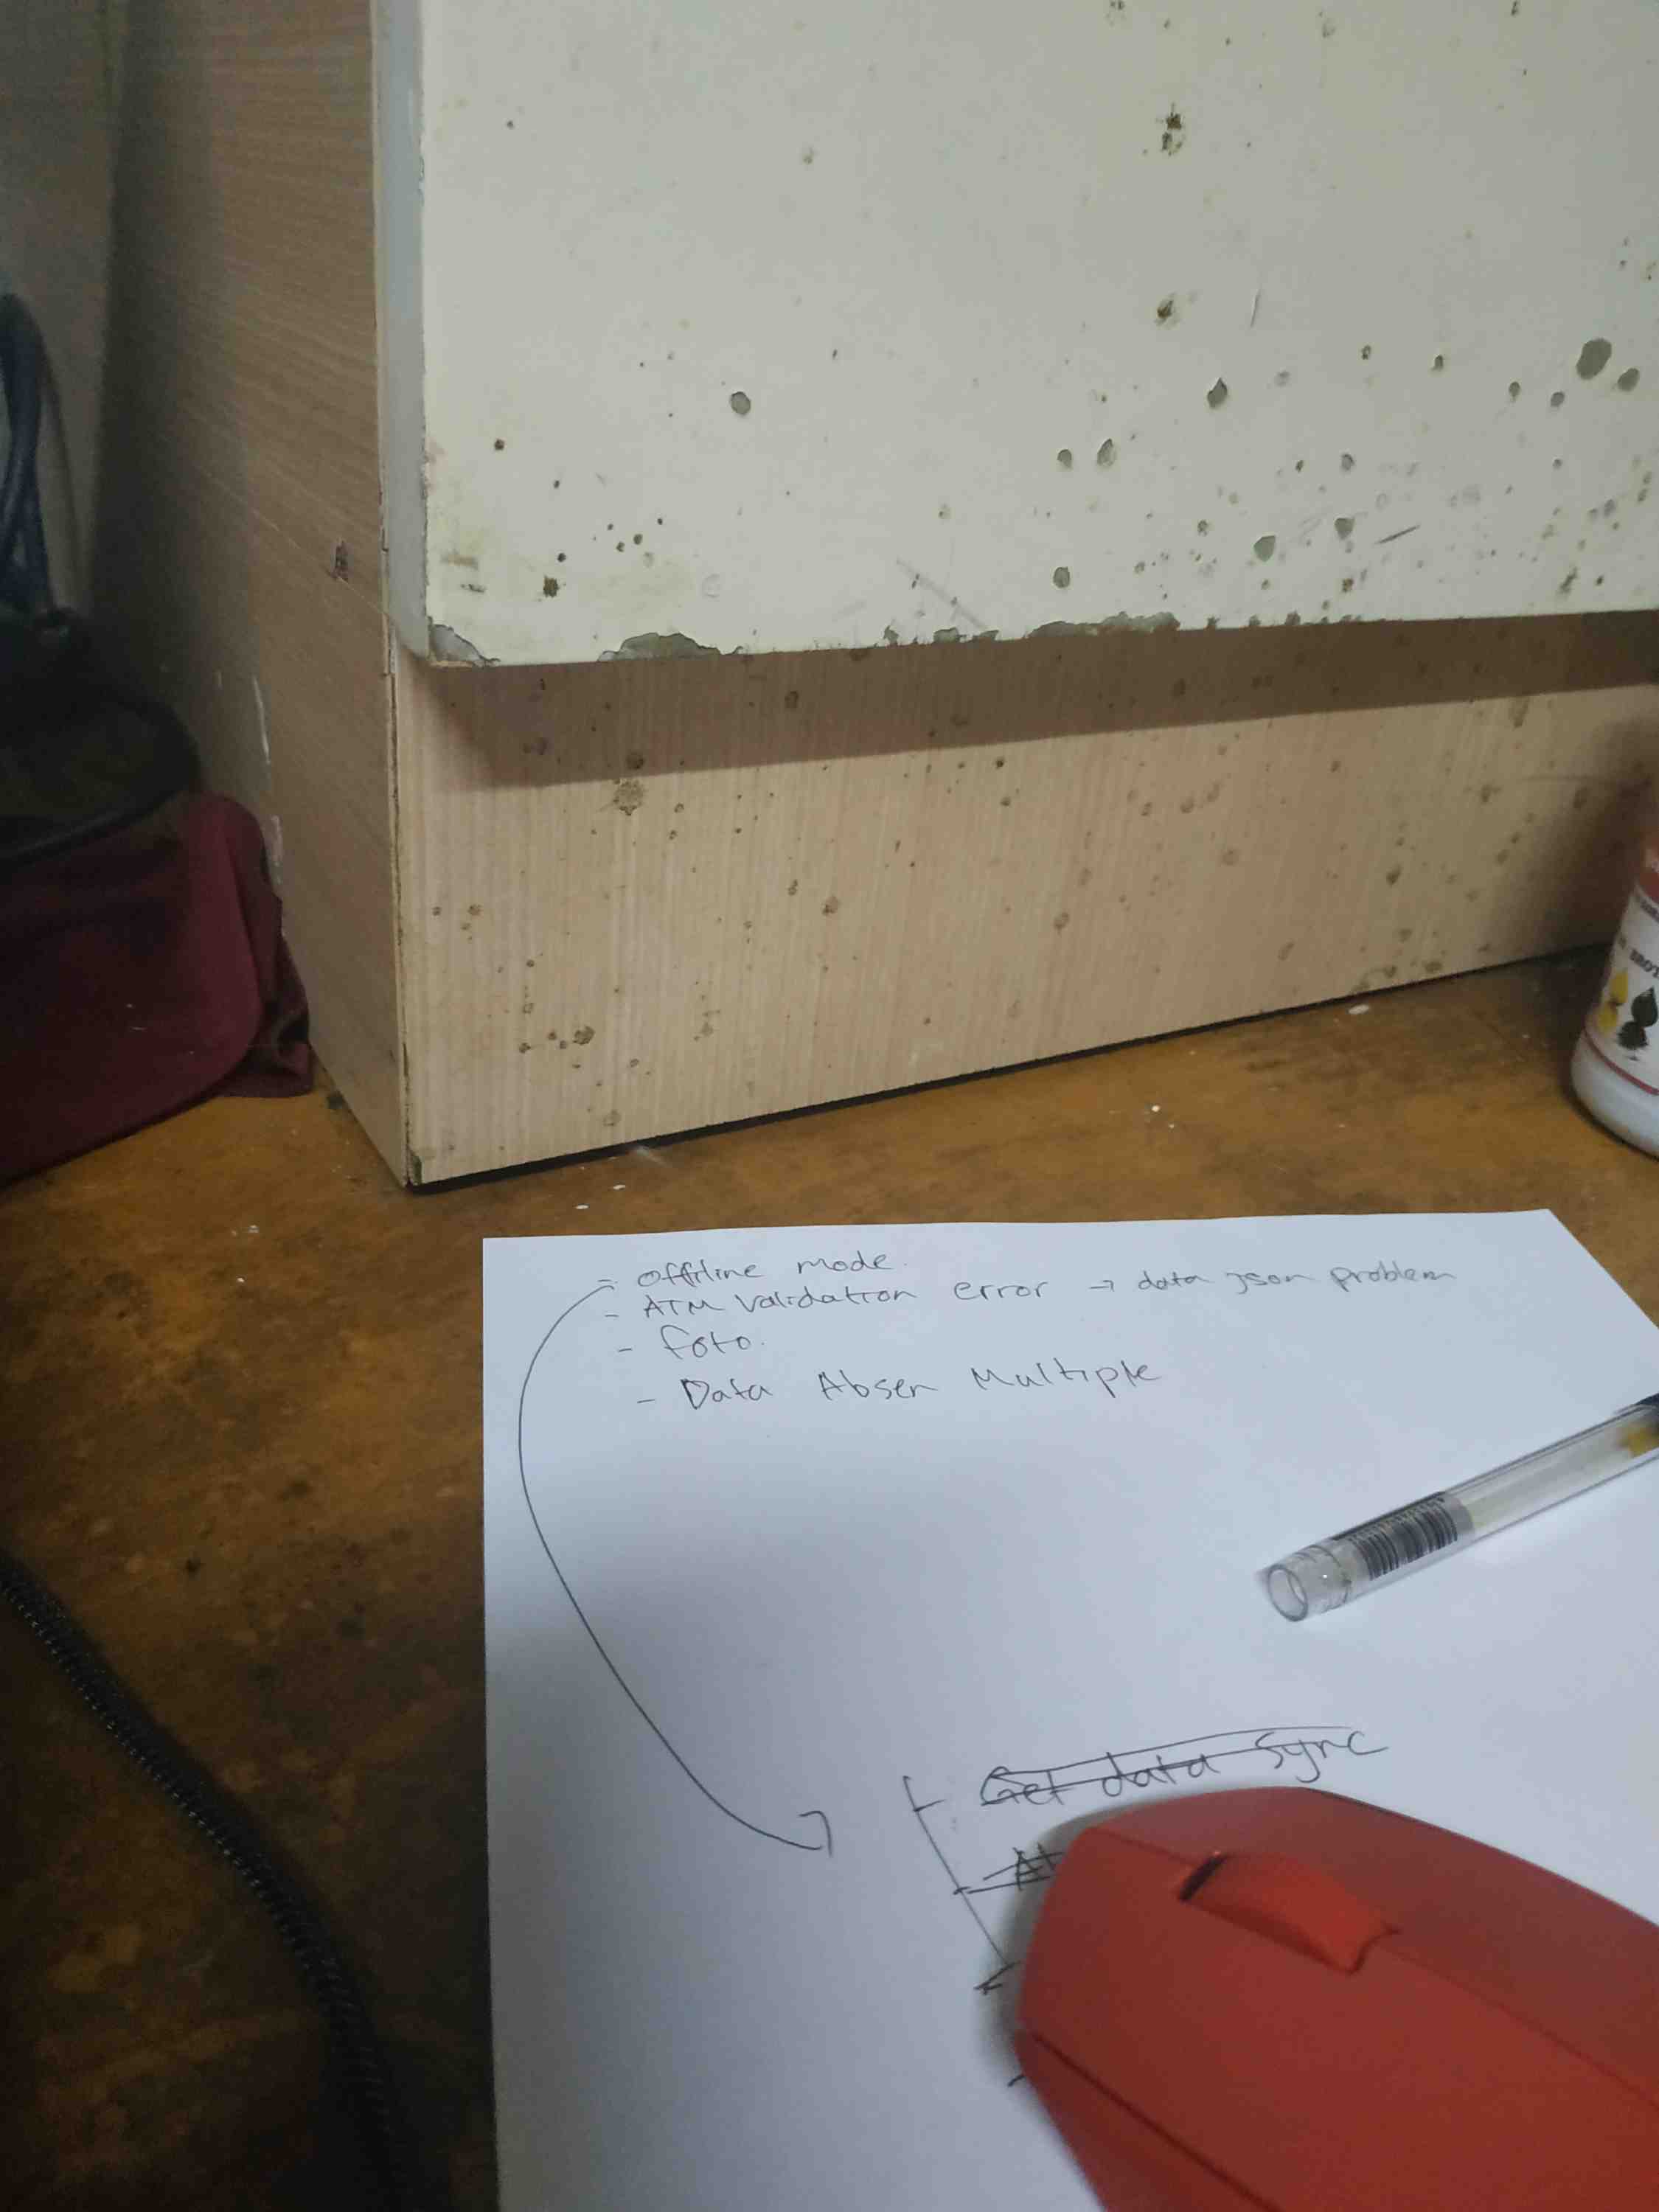 - Offline mode.
- ATM Validation error → data json problem
- foto.
- Data Absen Multiple
- Get data sync